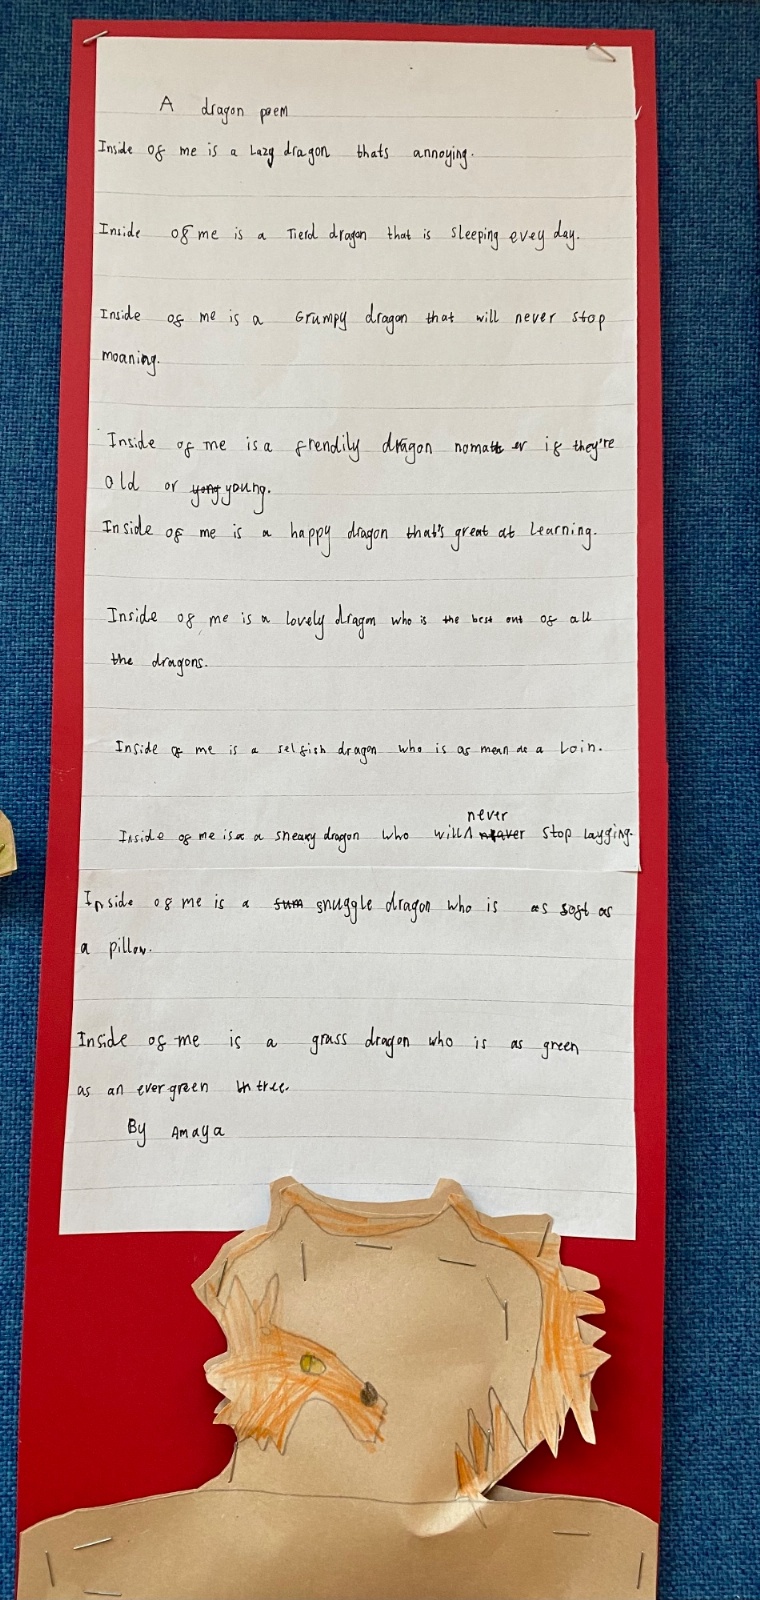 A dragon poem
Inside of me is a Lazy dragon thats annoying.
Inside of me is a Tierd dragon that is sleeping evey day.
Inside of me is a Grumpy dragon that will never stop
moaning.
Inside of me is a frendily dragon nomatt er if they're
old or yong young.
Inside of me is a happy dragon that's great at learning.
Inside of me is a lovely dragon who is the best out of all
the dragons.
Inside of me is a selfish dragon who is as mean as a Loin.
never
Inside of me is a a sneaky dragon who will stop layging.
Inside of me is a sum snuggle dragon who is as soft as
a pillow.
Inside of me is a grass dragon who is as green
as an ever green tree.
By Amaya